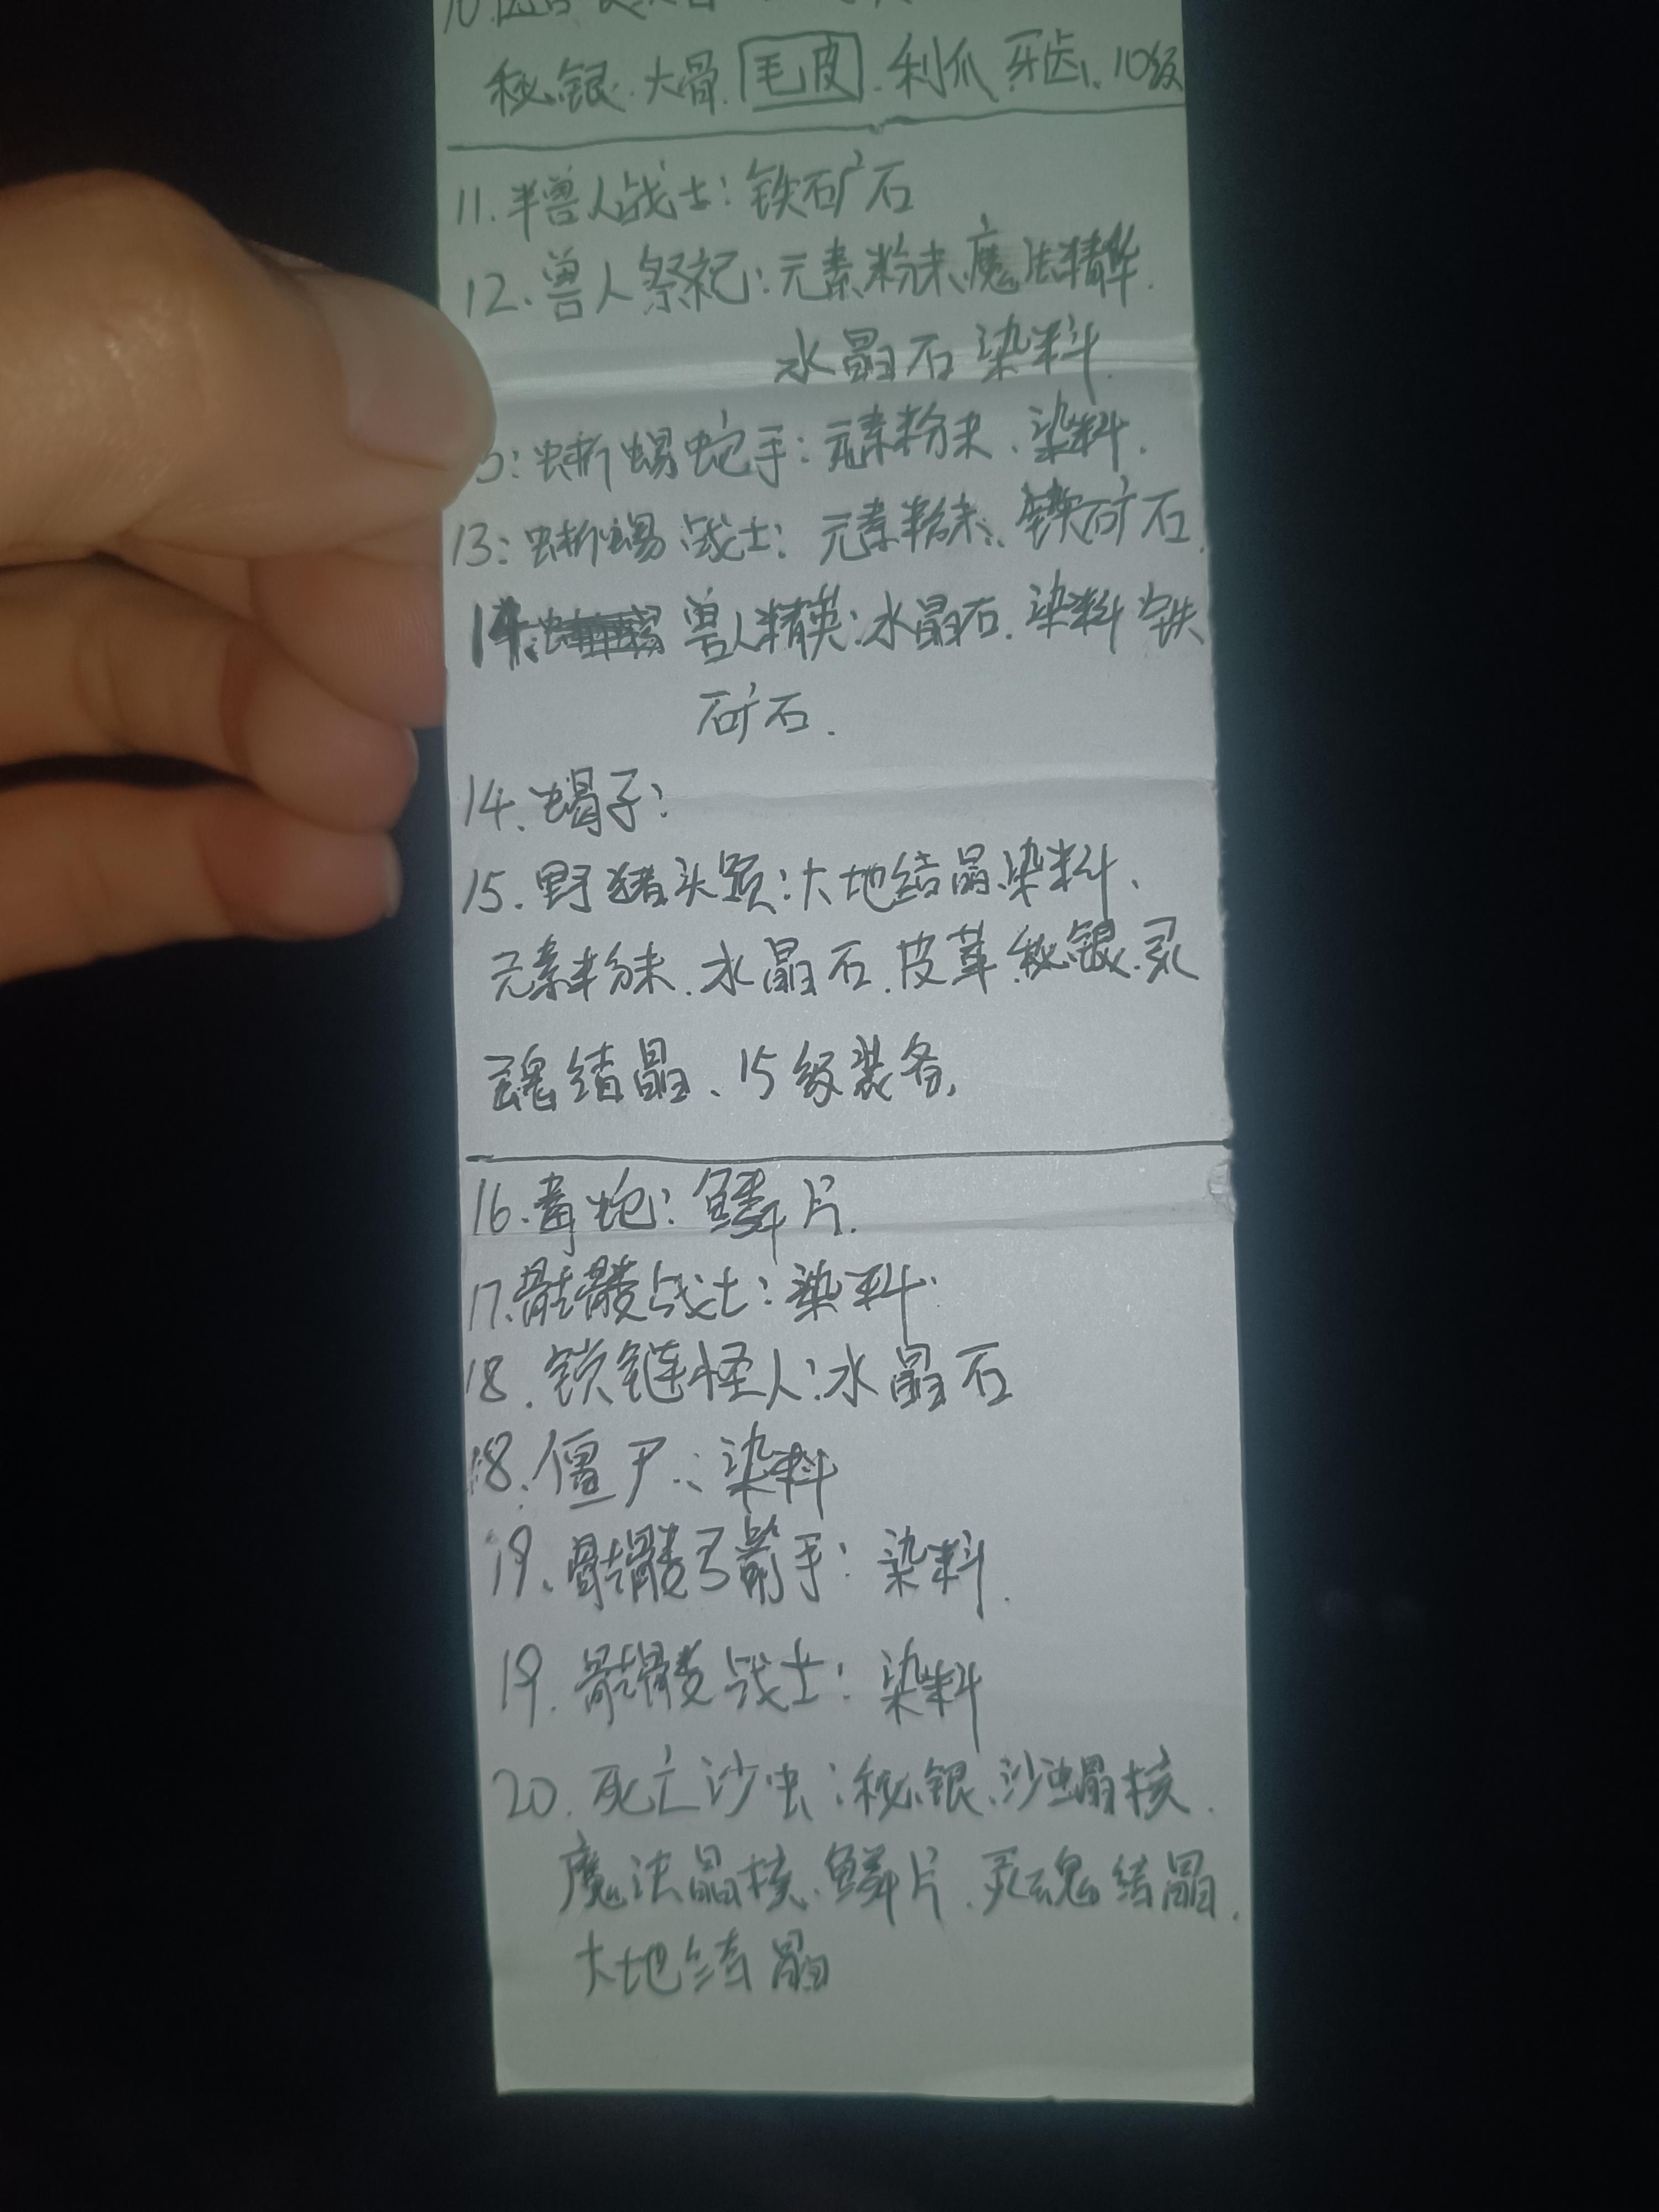 10.
秘银.大骨.毛皮.利爪 牙齿、10级
11.半兽人战士:铁矿石
12.兽人祭祀:元素粉末、魔法精华.
水晶石 染料.
:蜥蜴蛇手:元素粉末、染料.
13:蜥蜴战士:元素粉末、铁矿石.
14. 兽人精英:水晶石.染料 铁
矿石.
14、蝎子:
15.野猪头领:大地结晶、染料、
元素粉末.水晶石.皮革.秘银.灵
魂结晶、15级装备,
16.毒蛇:鳞片.
17.骷髅战士:染料.
18.锁链怪人:水晶石
18.僵尸:染料
19.骷髅弓箭手:染料.
19.骷髅战士:染料
20.死亡沙虫:秘银、沙虫晶核.
魔法晶核、鳞片.灵魂结晶.
大地结晶